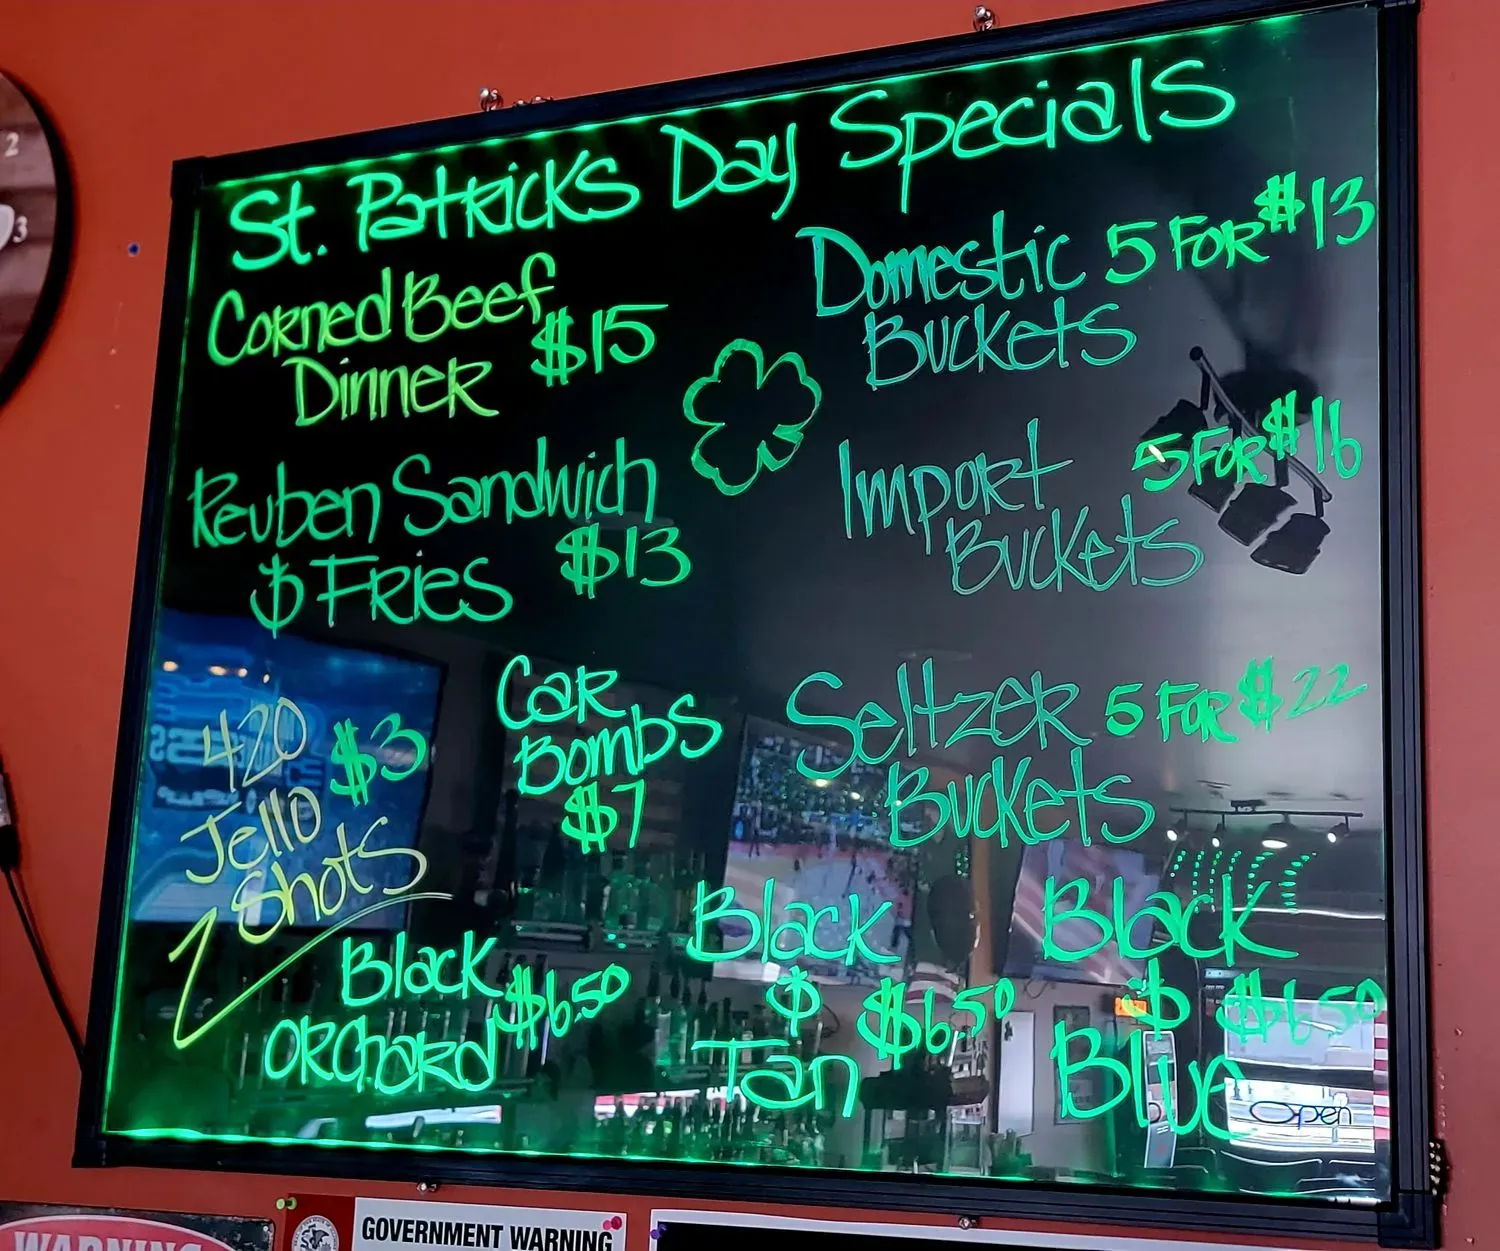 St. Patricks Day Specials
Corned Beef
Dinner $15
Reuben Sandwich
& Fries $13
Domestic 5 for $13
Buckets
Import 5 for $16
Buckets
Seltzer 5 for $22
Buckets
420 $3
Jello
Shots
Car
Bombs
$7
Black
Orchard $6.50
Black
& $6.50
Tan
Black
& $6.50
Blue
Open
2
3
WARNING
GOVERNMENT WARNING